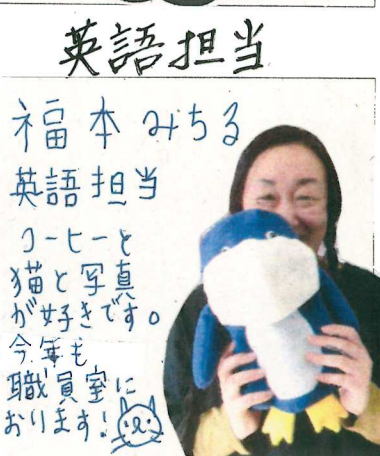 英語担当
福本みちる
英語担当
コーヒーと
猫と写真
が好きです。
今年も
職員室に
おります!